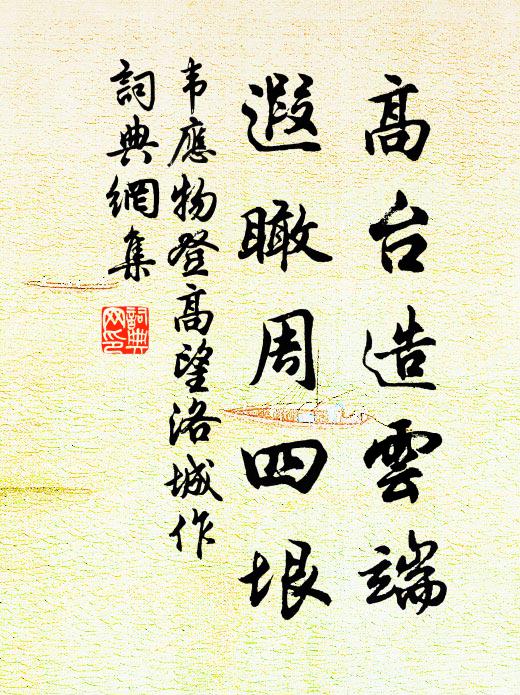 高台造雲端
遐瞰周四垠
韦應物登高望洛城作
詞典網集
詞典
网印